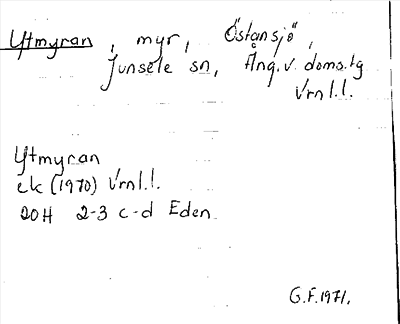 Ytmyran, myr, Östansjö,
Junsele sn, Ång. v. doms.tg
Vrnl.l.
Ytmyran
ek (1970) Vrnl.l.
20H 2-3 c-d Eden
G.F. 1971.